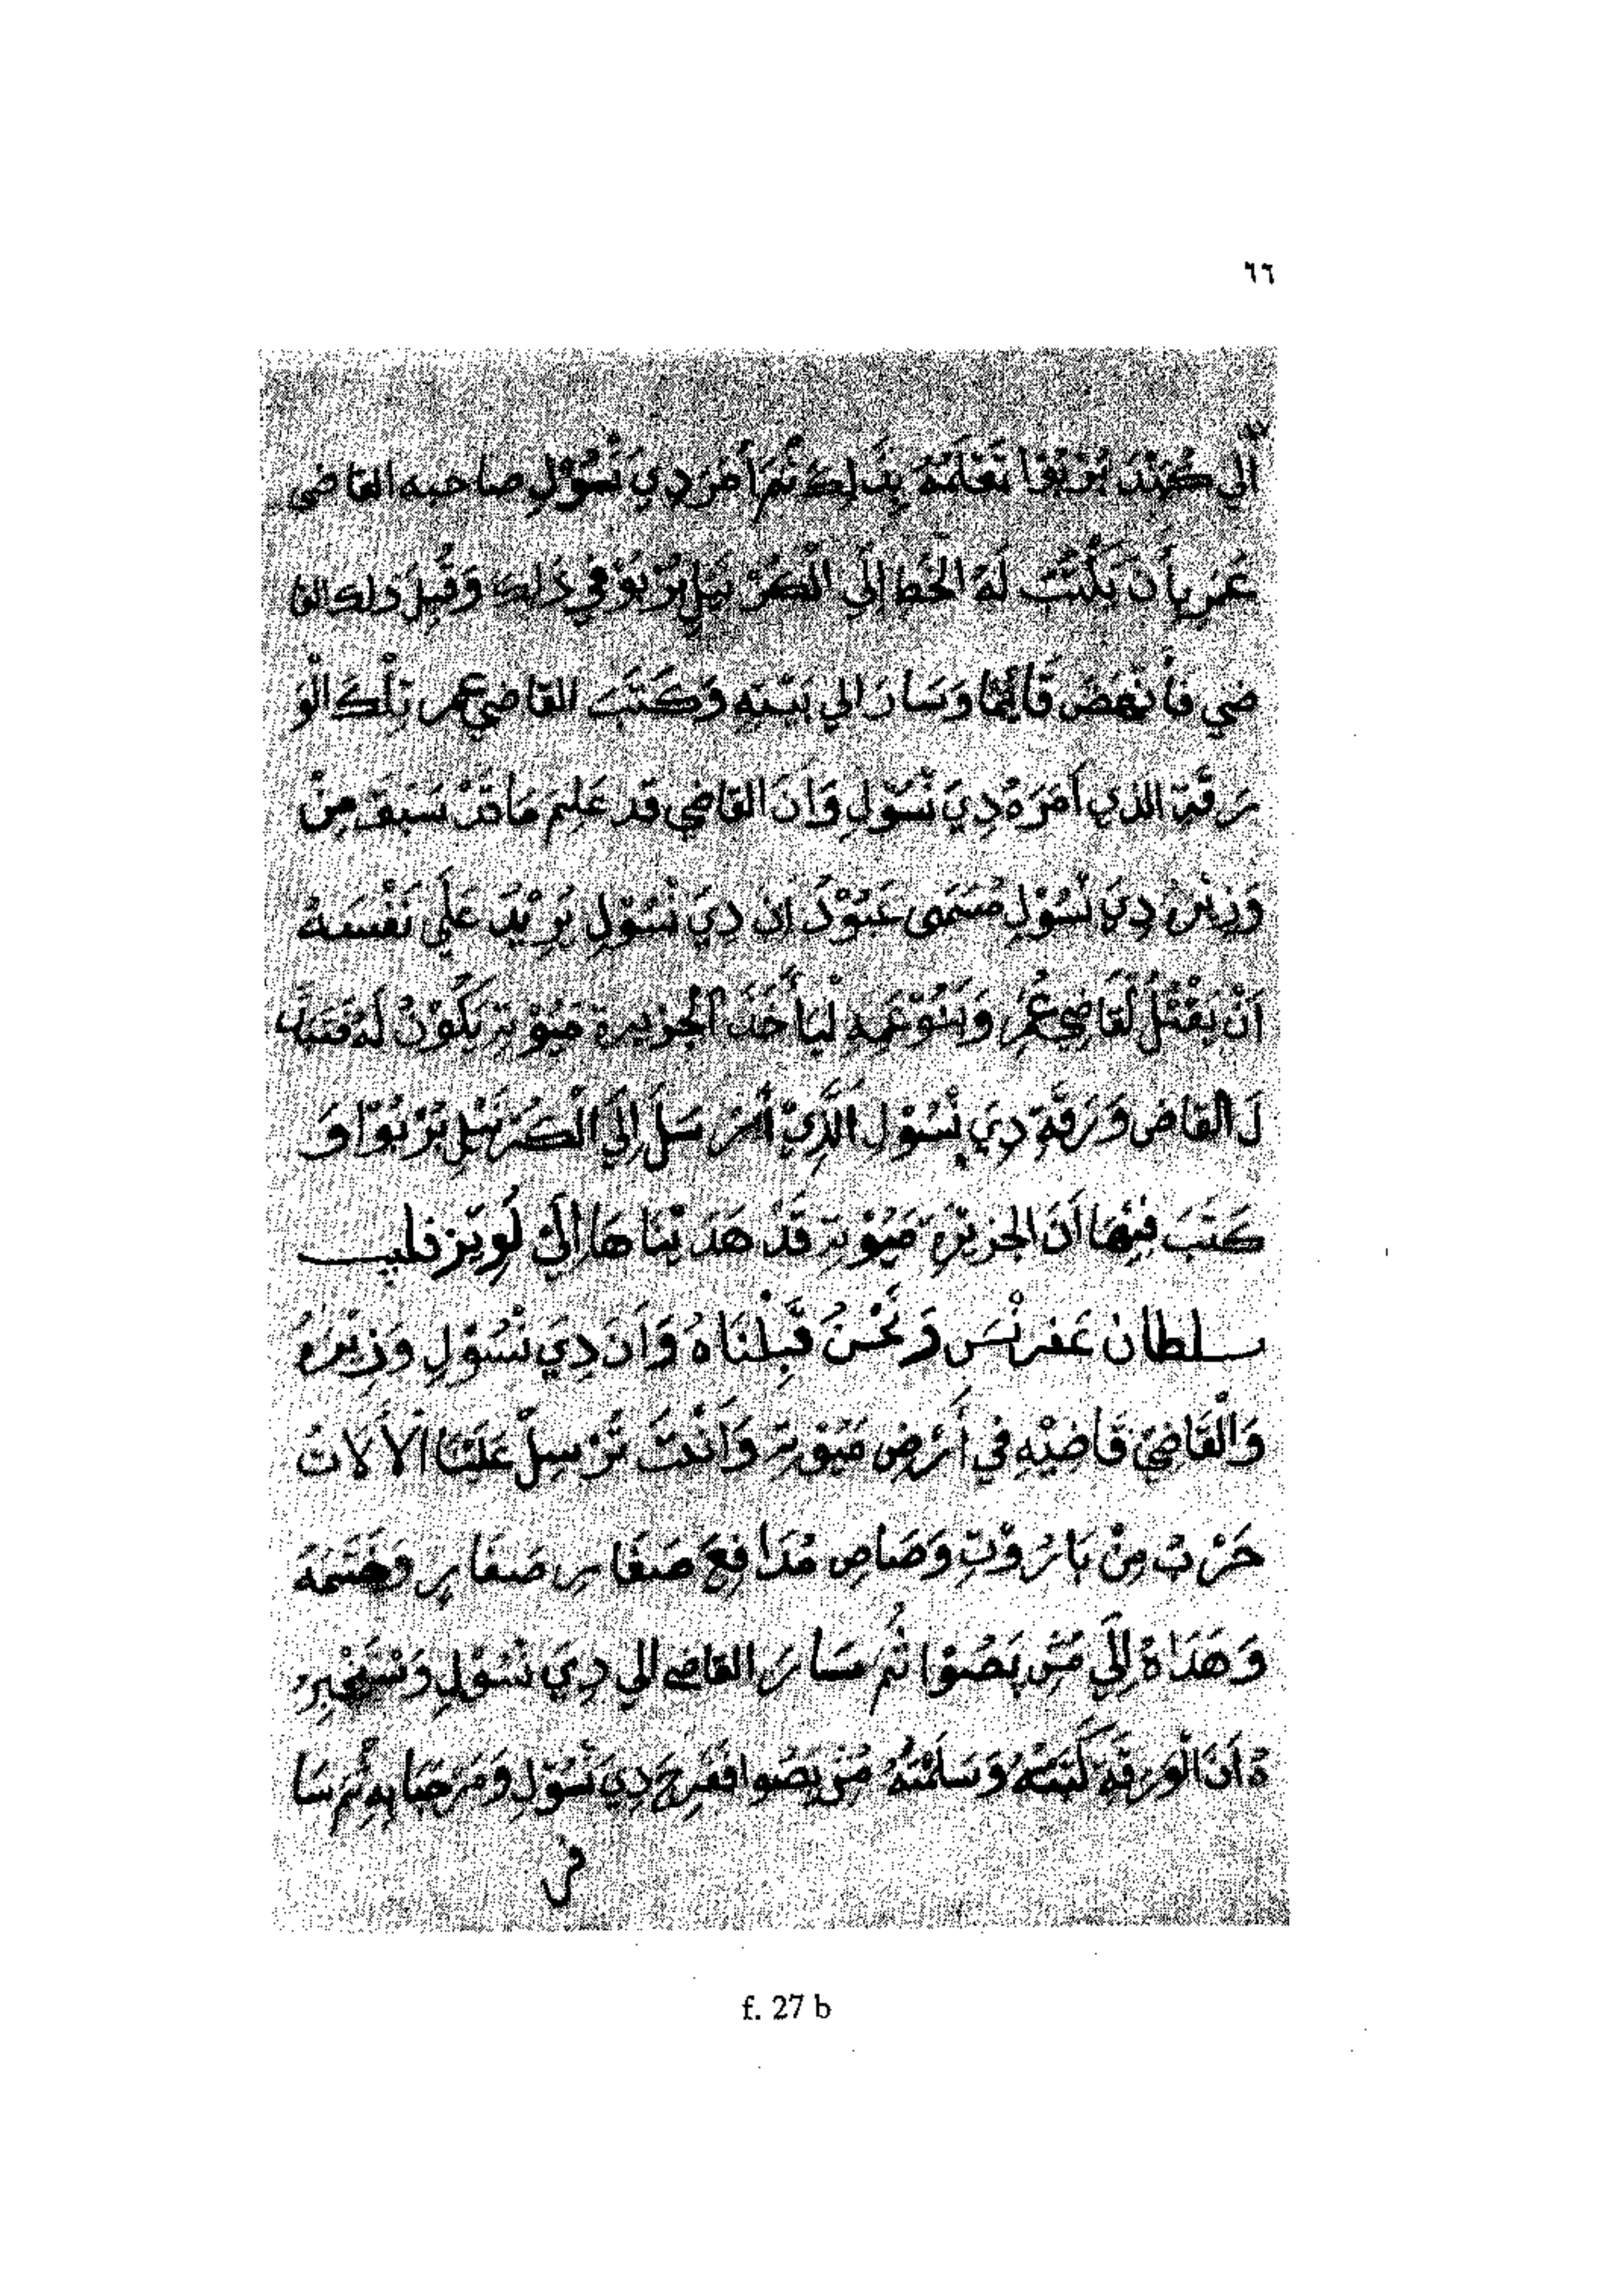 ٦٦
اَلي كُمَنْدَ بُرْبُوا نَعْلَمَهُ بِذَلِكَ ثُمَ اَمَرَ دِيَ نْسُوْلِ صاحبه القاضي
عُمَر بِأَن يَكْتُبْ لَهُ الْخَط إِلَي الْكُرْنَيل بُرْبُوْ في ذَلِكَ وَقَبِلَ ذلك القا
ضي فَأنْهَضَ قَائِمًا وَسَارَ الي بَيْتِهِ وَكَتَبَ القاضي عمر تِلْكَ الْوَ
رَقَة الذي اَمَرَهُ دِيَ نْسُوْلِ وَاَنَ القاضي قد عَلِمَ مَا قَدْ سَبَقَ مِنْ
وَزِيْرُ دِيَ نْسُوْلِ مُسَمَى عَبُوْدَ اِن دِيَ نْسُوْلِ يَرِيْدَ عَلَي نَفْسَهُ
اَنْ يَقْتُلُ لْقَاضِي عُمَرِ وَبَنُوْعَمِهِ لْيَأخُذَ الْجَزِيرة مَيُوْتِة يَكُوْنُ لَهُ فَتَبَدَّ
لَ القاض وَرَقَةِ دِيَ نْسُوْلِ الَّذِيْ أَرْسَلَ إِلَي الْكُرْنَيْلِ بُرْبُوْا وَ
كَتَبَ فِيْهَا اَنَ الجزيْرة مَيُوْتِة قَدْ هَدَيْنَاهَا اِلَي لُوِيَز فليب
سلطان عَفرنْسَ وَنَحْنُ قَبِلْنَاهُ وَاَنَ دِيَ نْسُوْلِ وَزِيْرَهُ
وَالْقَاضِيَ قَاضِيْهِ في أَرْضِ مَيُوْتِة وَاَنْتَ تَرْسِلَ عَلَيْنَا الْاَلَاتُ
حَرْبُ مِنْ بَارُوْتِ وَصَاصِ مُدَافِعَ صَغَار صَغَارِ وَخَتَمَهُ
وَهَدَاهُ إِلَي مُسْ بَصُوْا ثُم سَارَ القاضي الي دِيَ نْسُوْلِ وَسْتَخْبِرِ
هُ اَنَ الْوَرقَةِ كَتَبْتُهُ وَسَلَمْتُهُ مُسْ بَصُوا فَفَرِحَ دِيَ نْسُوْلِ وَمَرْحَبَا بِهِ ثُم سَا
f. 27 b